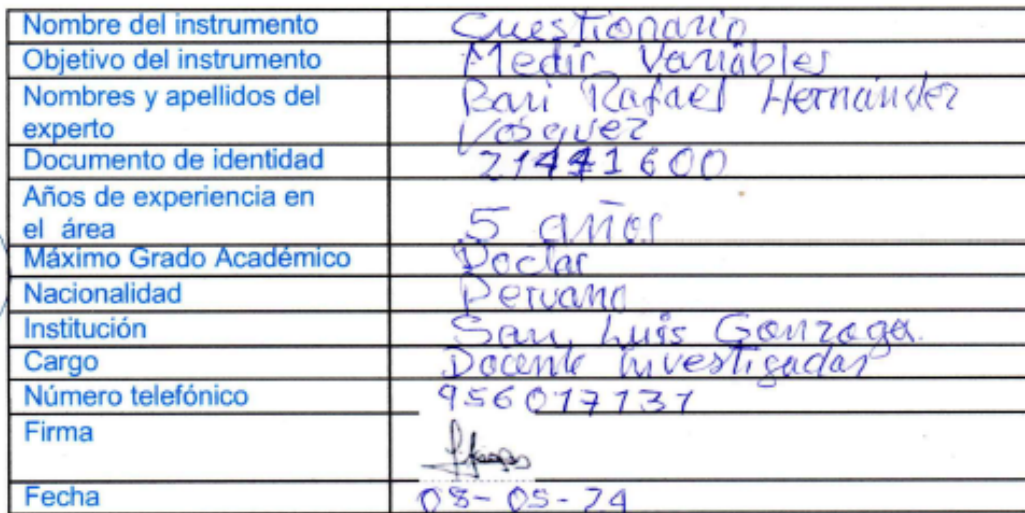 Nombre del instrumento Cuestionario
Objetivo del instrumento Medir Variables
Nombres y apellidos del experto Bari Rafael Hernández Vásquez
Documento de identidad 21441600
Años de experiencia en el área 5 años
Máximo Grado Académico Doctor
Nacionalidad Peruano
Institución San Luis Gonzaga.
Cargo Docente investigador
Número telefónico 956017131
Firma
Fecha 08-05-24